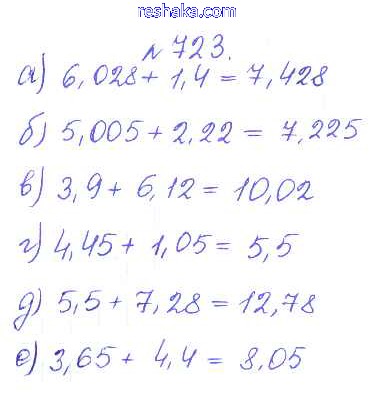 reshaka.com
№ 723.
а) 6,028 + 1,4 = 7,428
б) 5,005 + 2,22 = 7,225
в) 3,9 + 6,12 = 10,02
г) 4,45 + 1,05 = 5,5
д) 5,5 + 7,28 = 12,78
е) 3,65 + 4,4 = 8,05